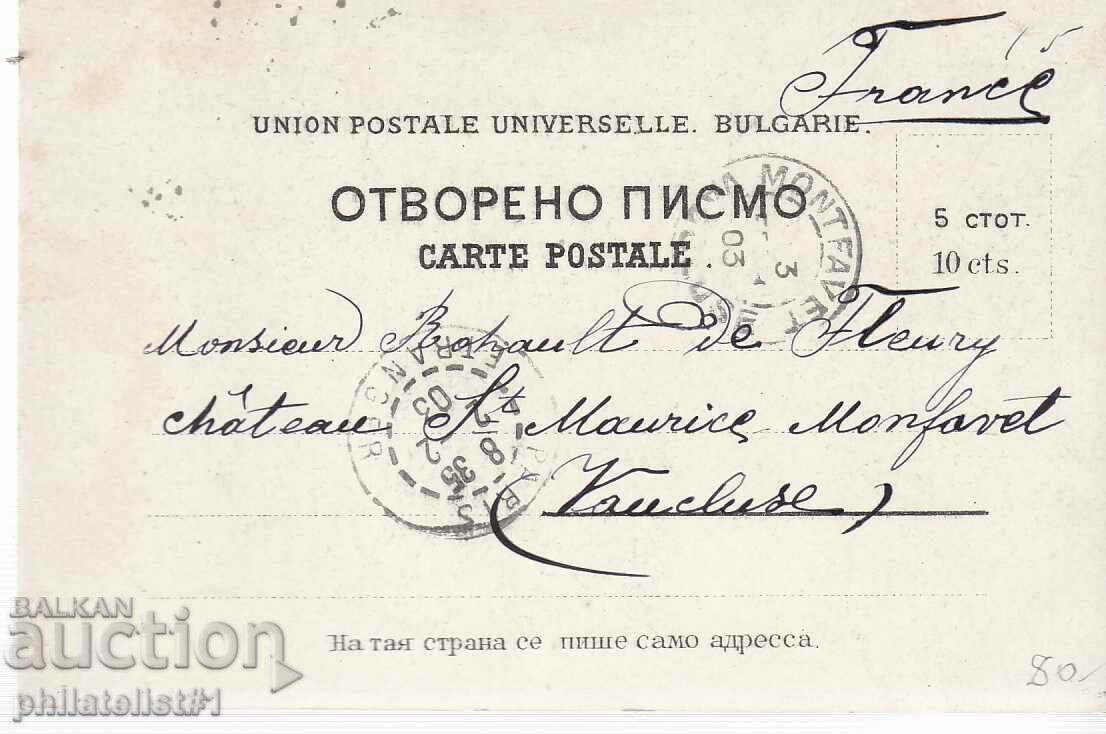 France
UNION POSTALE UNIVERSELLE. BULGARIE.
ОТВОРЕНО ПИСМО
CARTE POSTALE.
5 СТОТ.
10 cts.
MONTFAVET
3
03
Monsieur Rohault de Fleury
château St Maurice Monfavet
(Vaucluse)
PARIS ETRANGER
8 35
2
03
На тая страна се пише само адресса.
80
BALKAN
auction
philatelist#1